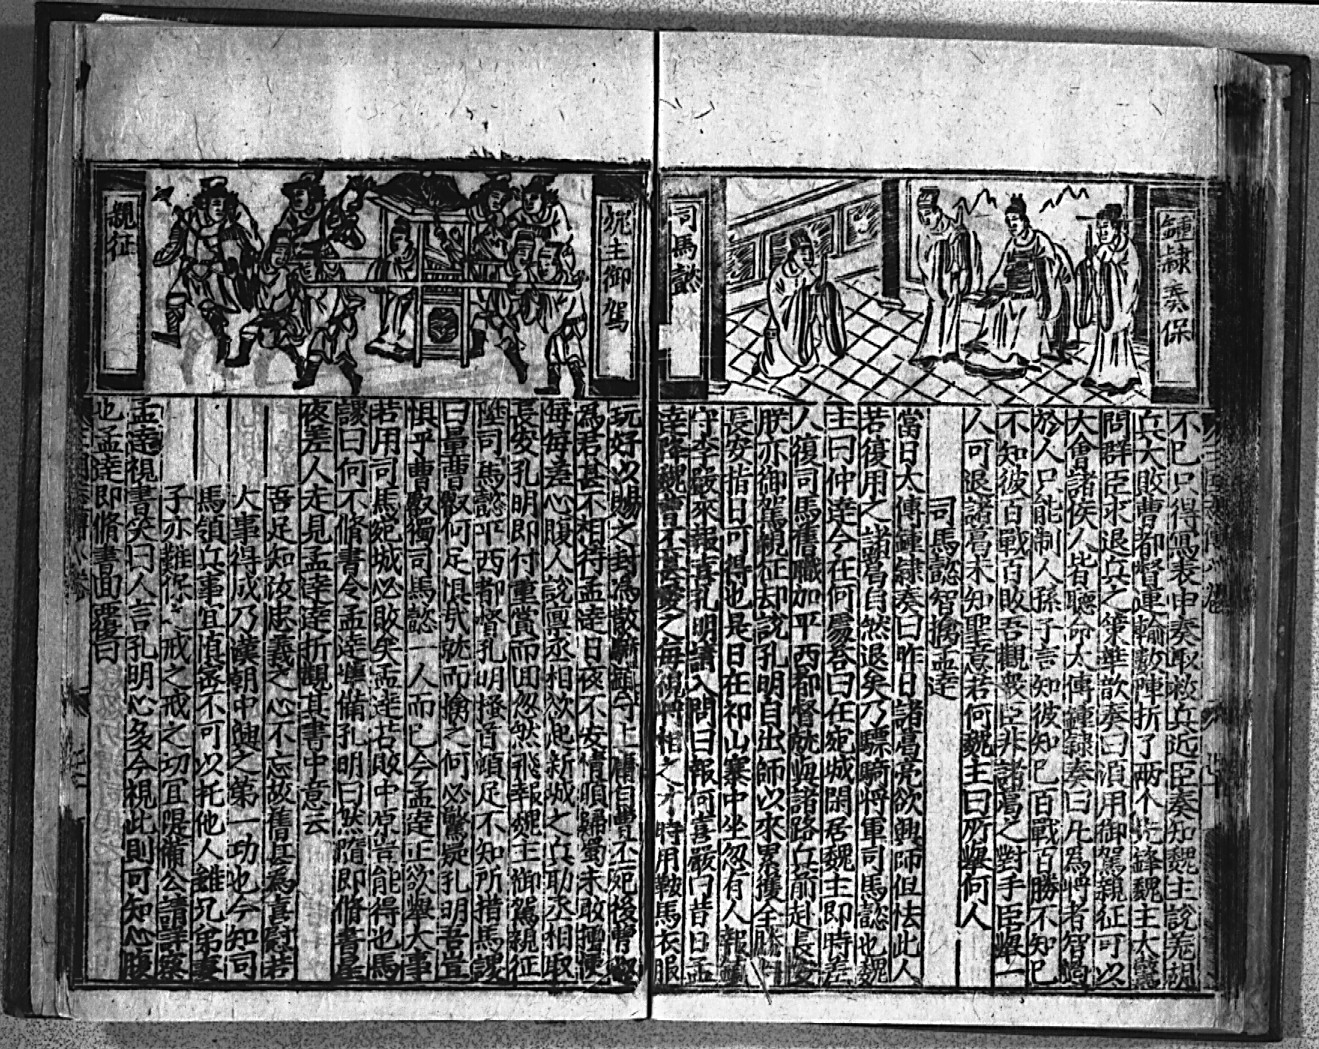 鍾繇奏保
司馬懿
不已只得寫表申奏取救兵近臣奏知魏主說羌胡
兵大敗曹都督連輸數陣折了兩个先鋒魏主大驚
問群臣求退兵之策華歆奏曰須用御駕親征可以
大會諸侯人皆聽命太傅鍾繇奏曰凡為將者智過
於人只能制人孫子言知彼知己百戰百勝不知己
不知彼百戰百敗吾觀眾臣非諸葛之對手臣舉一
人可退諸葛未知聖意若何魏主曰所舉何人
司馬懿智擒孟達
當日太傅鍾繇奏曰昨日諸葛亮欲興師但怯此人
若復用之諸葛自然退矣乃驃騎將軍司馬懿也魏
主曰仲達今在何處答曰在宛城閑居魏主即時差
人復司馬舊職加平西都督就與諸路兵前赴長安
朕亦御駕親征却說孔明自出師以來累獲全勝
長安指日可得也是日在祁山寨中坐忽有人報
守李嚴來報喜孔明請入問曰報何喜嚴曰昔日孟
達降魏曹丕甚愛之每視將相之才時用鞍馬衣服
魏主御駕
親征
玩好以賜之封為散騎 自曹丕死後曹叡
為君甚不相待孟達日夜不安情願歸蜀未敢擅便
每每差心腹人說稟丞相欲起新城之兵助丞相取
長安孔明即付重賞而回忽然飛報魏主御駕親征
陞司馬懿平西都督孔明搔首頓足不知所措馬謖
曰量曹叡何足惧哉就而擒之何必驚疑孔明曰吾豈
惧乎曹叡獨司馬懿一人而已今孟達正欲舉大事
若用司馬宛城必敗矣孟達若敗中原豈能得也馬
謖曰何不脩書令孟達隄備孔明曰然隨即脩書星
夜差人走見孟達達折觀其書中意云
吾足知汝忠義之心不忘故舊甚為喜慰若
大事得成乃漢朝中興之第一功也今知司
馬領兵事宜慎密不可以托他人雖兄弟妻
子亦難保之戒之戒之切宜隄備公請詳察
孟達視書笑曰人言孔明心多今視此則可知心腹
也孟達即脩書回覆曰